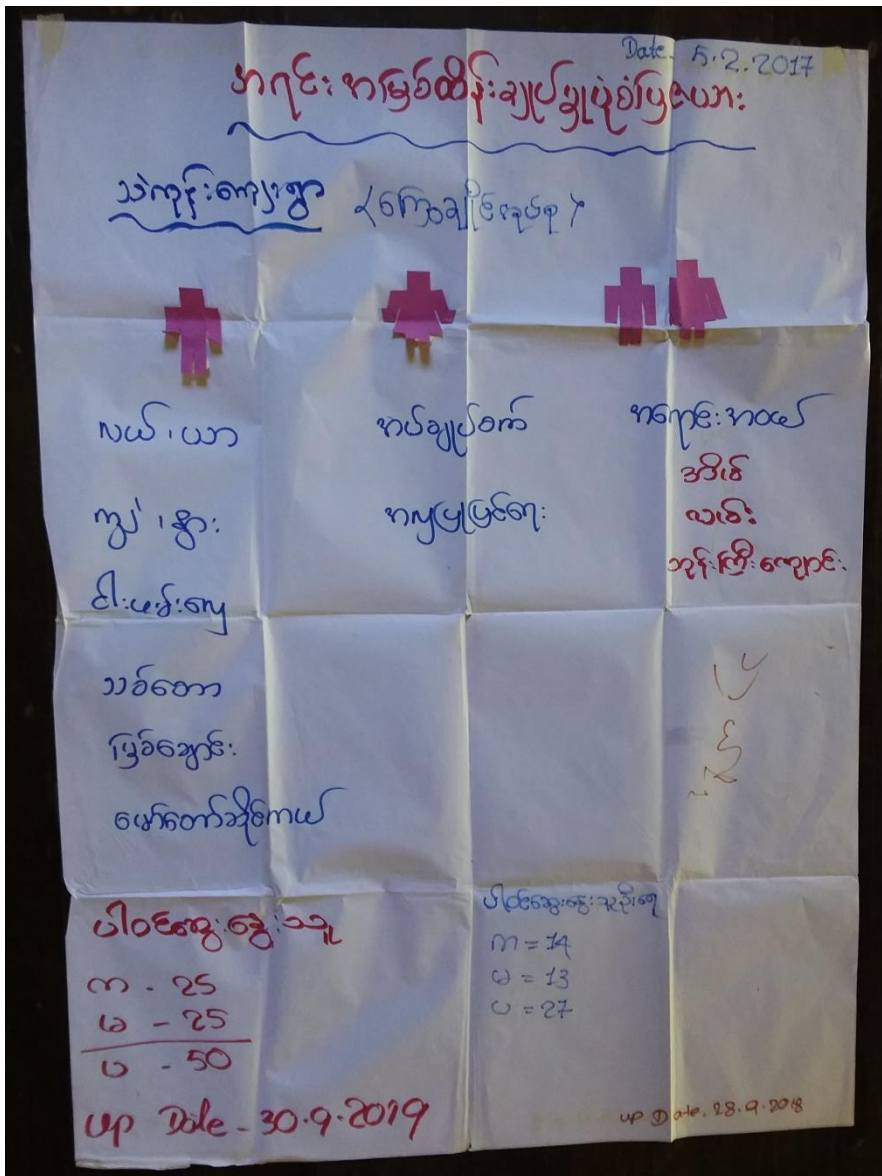 Date - 5.2.2017
အရင်းအမြစ်ထိန်းချုပ်မှုပုံစံပြဇယား
သဲကုန်းကျေးရွာ (ကြေးချိုင်အုပ်စု)
လယ်၊ယာ
ကျွဲ၊နွား
ငါးဖမ်းလှေ
သစ်တော
မြစ်ချောင်း
မော်တော်ဆိုင်ကယ်
အပ်ချုပ်စက်
အလှပြုပြင်ရေး
အရောင်းအဝယ်
အိမ်
လမ်း
ဘုန်းကြီးကျောင်း
ပါဝင်ဆွေးနွေးသူ
က - 25
မ - 25
ပ - 50
up Date - 30.9.2019
ပါဝင်ဆွေးနွေးသူဦးရေ
က = 14
မ = 13
ပ = 27
up Date. 28.9.2018